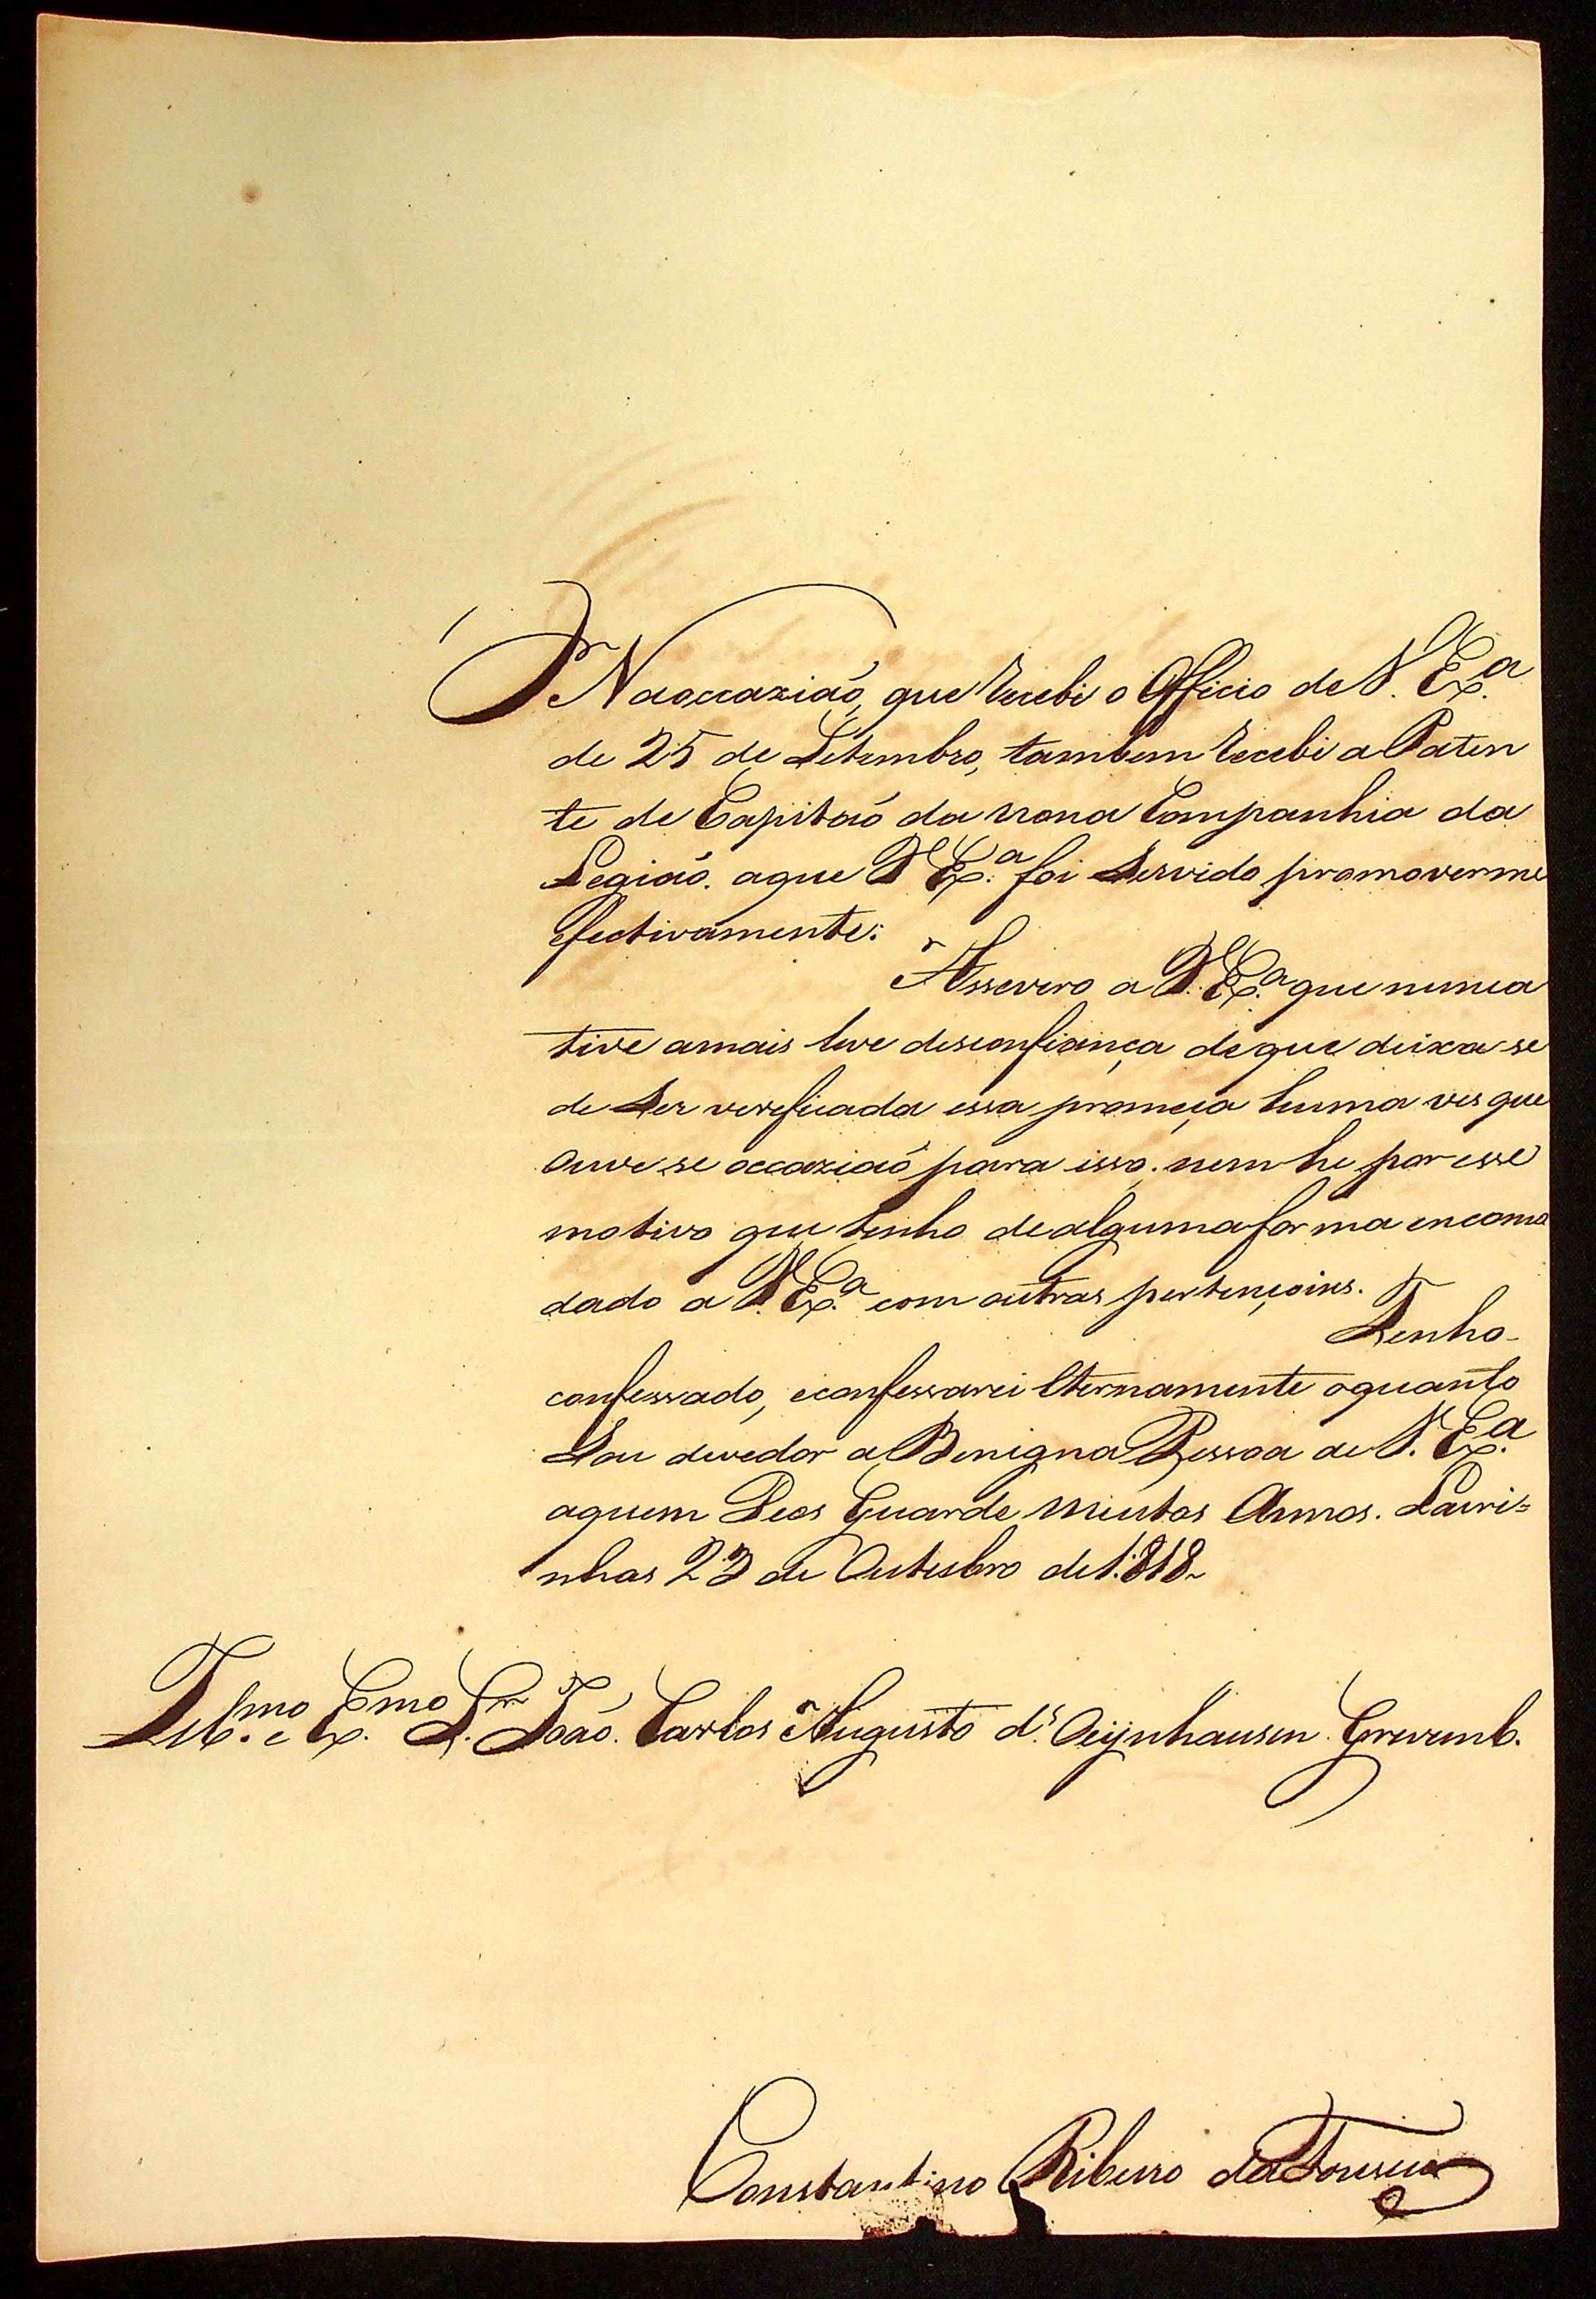 Naoccaziaõ, que recebi o Officio de V. Ex.ª
de 25 de Setembro, tambem recebi a Paten
te de Capitaõ da nona Companhia da
Legiaõ. aque V Ex.ª foi Servido promoverme
efectivamente:
Assevero a V. Ex.ª que nunca
tive amais leve desconfiança deque deixa-se
de Ser verificada essa promeça huma ves que
Ouve-se occaziaõ para isso; nem he por esse
motivo que tenho dealguma forma encomo
dado a V. Ex.ª com outras pertençoins.
Tenho
confessado, econfessarei Eternamente oquanto
Sou devedor a Benigna Pessoa de V. Ex.ª
aquem Deos Guarde muitos Annos. Lavri=
nhas 23 de Outubro de 1:818~
Ill.mo e Ex.mo S.r Joaõ. Carlos Augusto d' Oeijnhausen Grevemb.
Constantino Ribeiro da Fonseca